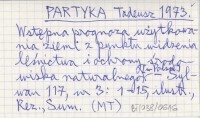 PARTYKA Tadeusz 1973.
Wstępna prognoza użytkowa-
nia ziemi z punktu widzenia
leśnictwa i ochrony środo-
wiska naturalnego. Syl-
wan 117, nr 3: 1-15, ilustr.,
Rez., Sum. (MT)